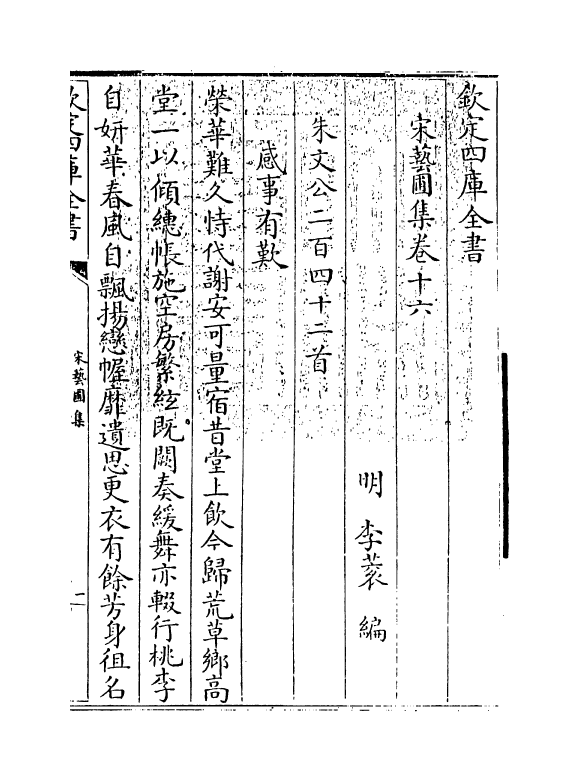 欽定四庫全書
宋藝圃集卷十六
明 李蓘 編
朱文公二百四十二首
感事有歎
榮華難久恃代謝安可量宿昔堂上飲今歸荒草鄉高
堂一以傾繐帳施空房繁絃既闋奏緩舞亦輟行桃李
自妍華春風自飄揚戀幄靡遺思更衣有餘芳身徂名
欽定四庫全書
宋藝圃集